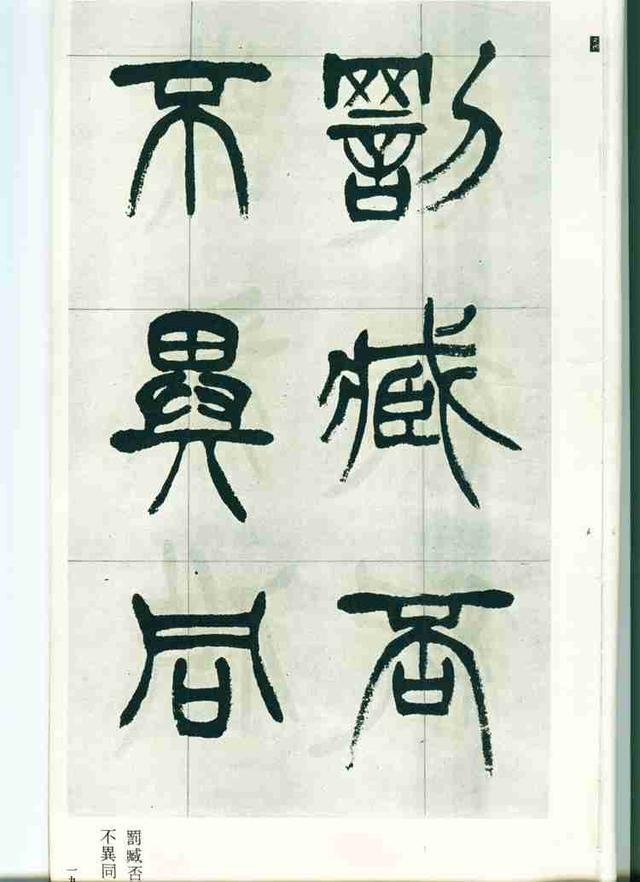 罰臧否
不異同
罰臧否
不異同
一九